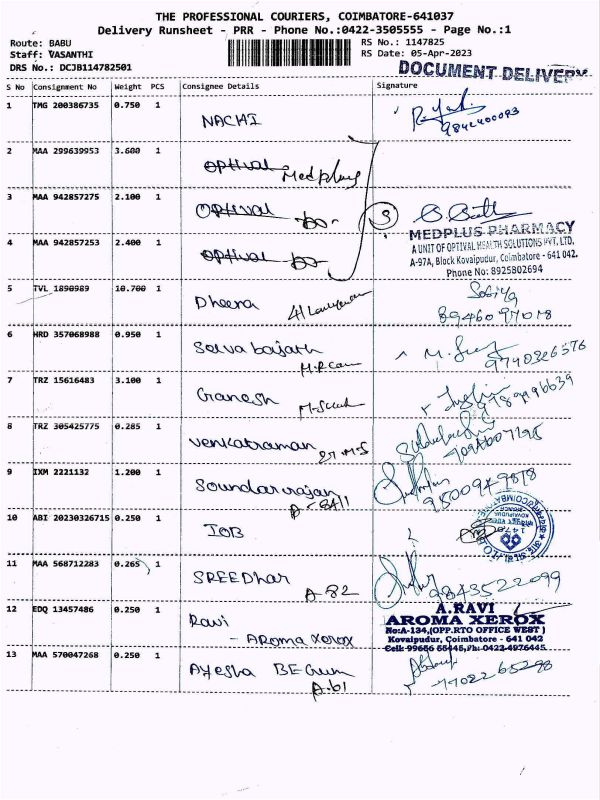 THE PROFESSIONAL COURIERS, COIMBATORE-641037
Delivery Runsheet - PRR - Phone No.:0422-3505555 - Page No.:1
Route: BABU RS No.: 1147825
Staff: VASANTHI RS Date: 05-Apr-2023
DRS No.: DCJB114782501
DOCUMENT DELIVERY
S No Consignment No Weight PCS Consignee Details Signature
1 TMG 200386735 0.750 1 NACHI
9842400093
2 MAA 299639953 3.600 1 Optival Medplus
3 MAA 942857275 2.100 1 Optival -do-
MEDPLUS PHARMACY
A UNIT OF OPTIVAL HEALTH SOLUTIONS PVT. LTD.
4 MAA 942857253 2.400 1 Optival -do-
A-97A, Block Kovaipudur, Coimbatore - 641 042.
Phone No: 8925802694
5 TVL 1890989 10.700 1 Dheena
8946097078
6 HRD 357068988 0.950 1
9740326576
7 TRZ 15616483 3.100 1 Ganesh
8 TRZ 305425775 0.285 1 Venkatraman
9 IXM 2221132 1.200 1 Soundarrajan
A-8411
10 ABI 20230326715 0.250 1 IOB
11 MAA 568712283 0.265 1 SREEDHAR
A-82
9843522099
12 EDQ 13457486 0.250 1 Ravi
- AROMA XEROX
A.RAVI
AROMA XEROX
No:A-134,(OPP.RTO OFFICE WEST )
Kovaipudur, Coimbatore - 641 042
Cell: 99656 65445,Ph: 0422-4976445
13 MAA 570047268 0.250 1 Ayesha BEGum
A-61
7702265298